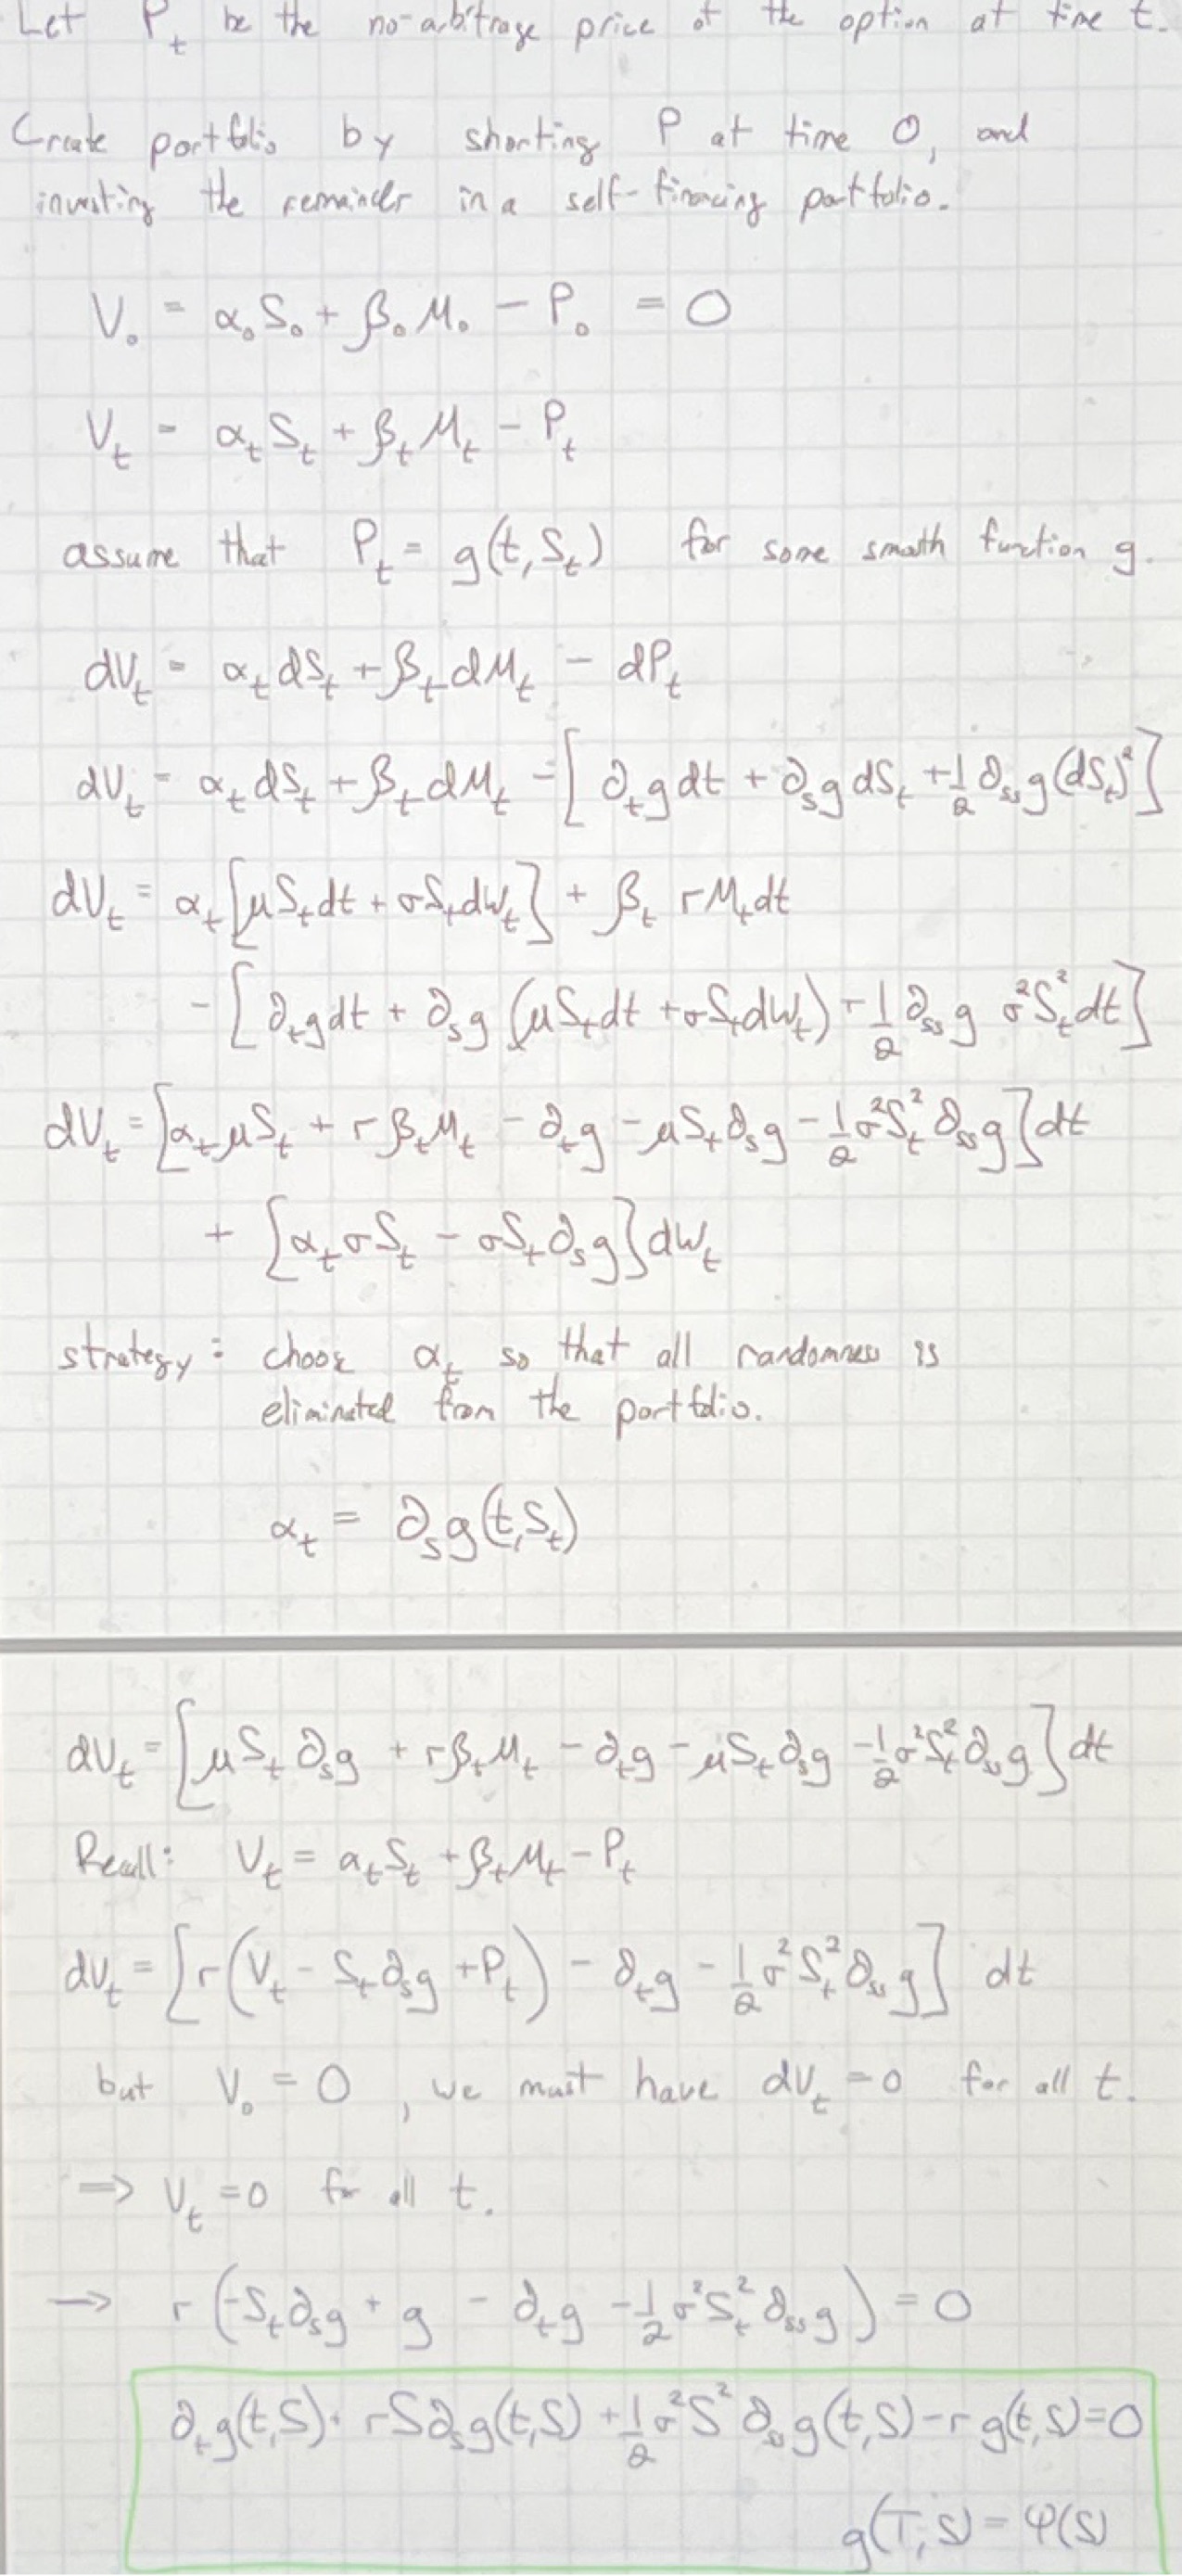 Let P_t be the no-arbitrage price of the option at time t.
Create portfolio by shorting P at time 0, and
investing the remainder in a self-financing portfolio.
V_0 = α_0 S_0 + β_0 M_0 - P_0 = 0
V_t = α_t S_t + β_t M_t - P_t
assume that P_t = g(t, S_t) for some smooth function g.
dV_t = α_t dS_t + β_t dM_t - dP_t
dV_t = α_t dS_t + β_t dM_t - [∂_t g dt + ∂_s g dS_t + 1/2 ∂_ss g (dS_t)^2]
dV_t = α_t [μ S_t dt + σ S_t dW_t] + β_t r M_t dt
- [∂_t g dt + ∂_s g (μ S_t dt + σ S_t dW_t) + 1/2 ∂_ss g σ^2 S_t^2 dt]
dV_t = [α_t μ S_t + r β_t M_t - ∂_t g - μ S_t ∂_s g - 1/2 σ^2 S_t^2 ∂_ss g] dt
+ [α_t σ S_t - σ S_t ∂_s g] dW_t
strategy: choose α_t so that all randomness is
eliminated from the portfolio.
α_t = ∂_s g(t, S_t)
dV_t = [μ S_t ∂_s g + r β_t M_t - ∂_t g - μ S_t ∂_s g - 1/2 σ^2 S_t^2 ∂_ss g] dt
Recall: V_t = α_t S_t + β_t M_t - P_t
dV_t = [r (V_t - S_t ∂_s g + P_t) - ∂_t g - 1/2 σ^2 S_t^2 ∂_ss g] dt
but V_0 = 0, we must have dV_t = 0 for all t.
⟹ V_t = 0 for all t.
→ r (-S_t ∂_s g + g - ∂_t g - 1/2 σ^2 S_t^2 ∂_ss g) = 0
∂_t g(t, S) + r S ∂_s g(t, S) + 1/2 σ^2 S^2 ∂_ss g(t, S) - r g(t, S) = 0
g(T, S) = φ(S)